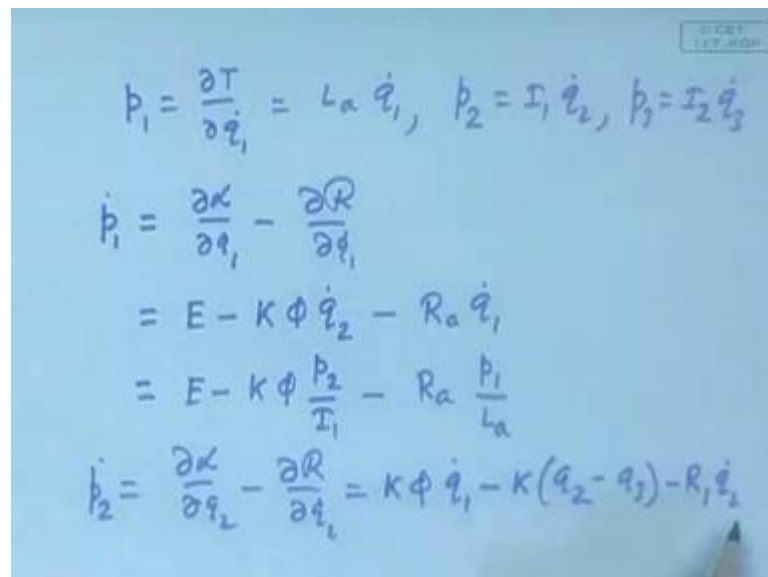 p₁ = ∂T/∂q̇₁ = Lₐ q̇₁, p₂ = I₁ q̇₂, p₃ = I₂ q̇₃
ṗ₁ = ∂ℒ/∂q₁ − ∂R/∂q̇₁
= E − K Φ q̇₂ − Rₐ q̇₁
= E − K Φ p₂/I₁ − Rₐ p₁/Lₐ
ṗ₂ = ∂ℒ/∂q₂ − ∂R/∂q̇₂ = K Φ q̇₁ − K(q₂ − q₃) − R₁ q̇₂